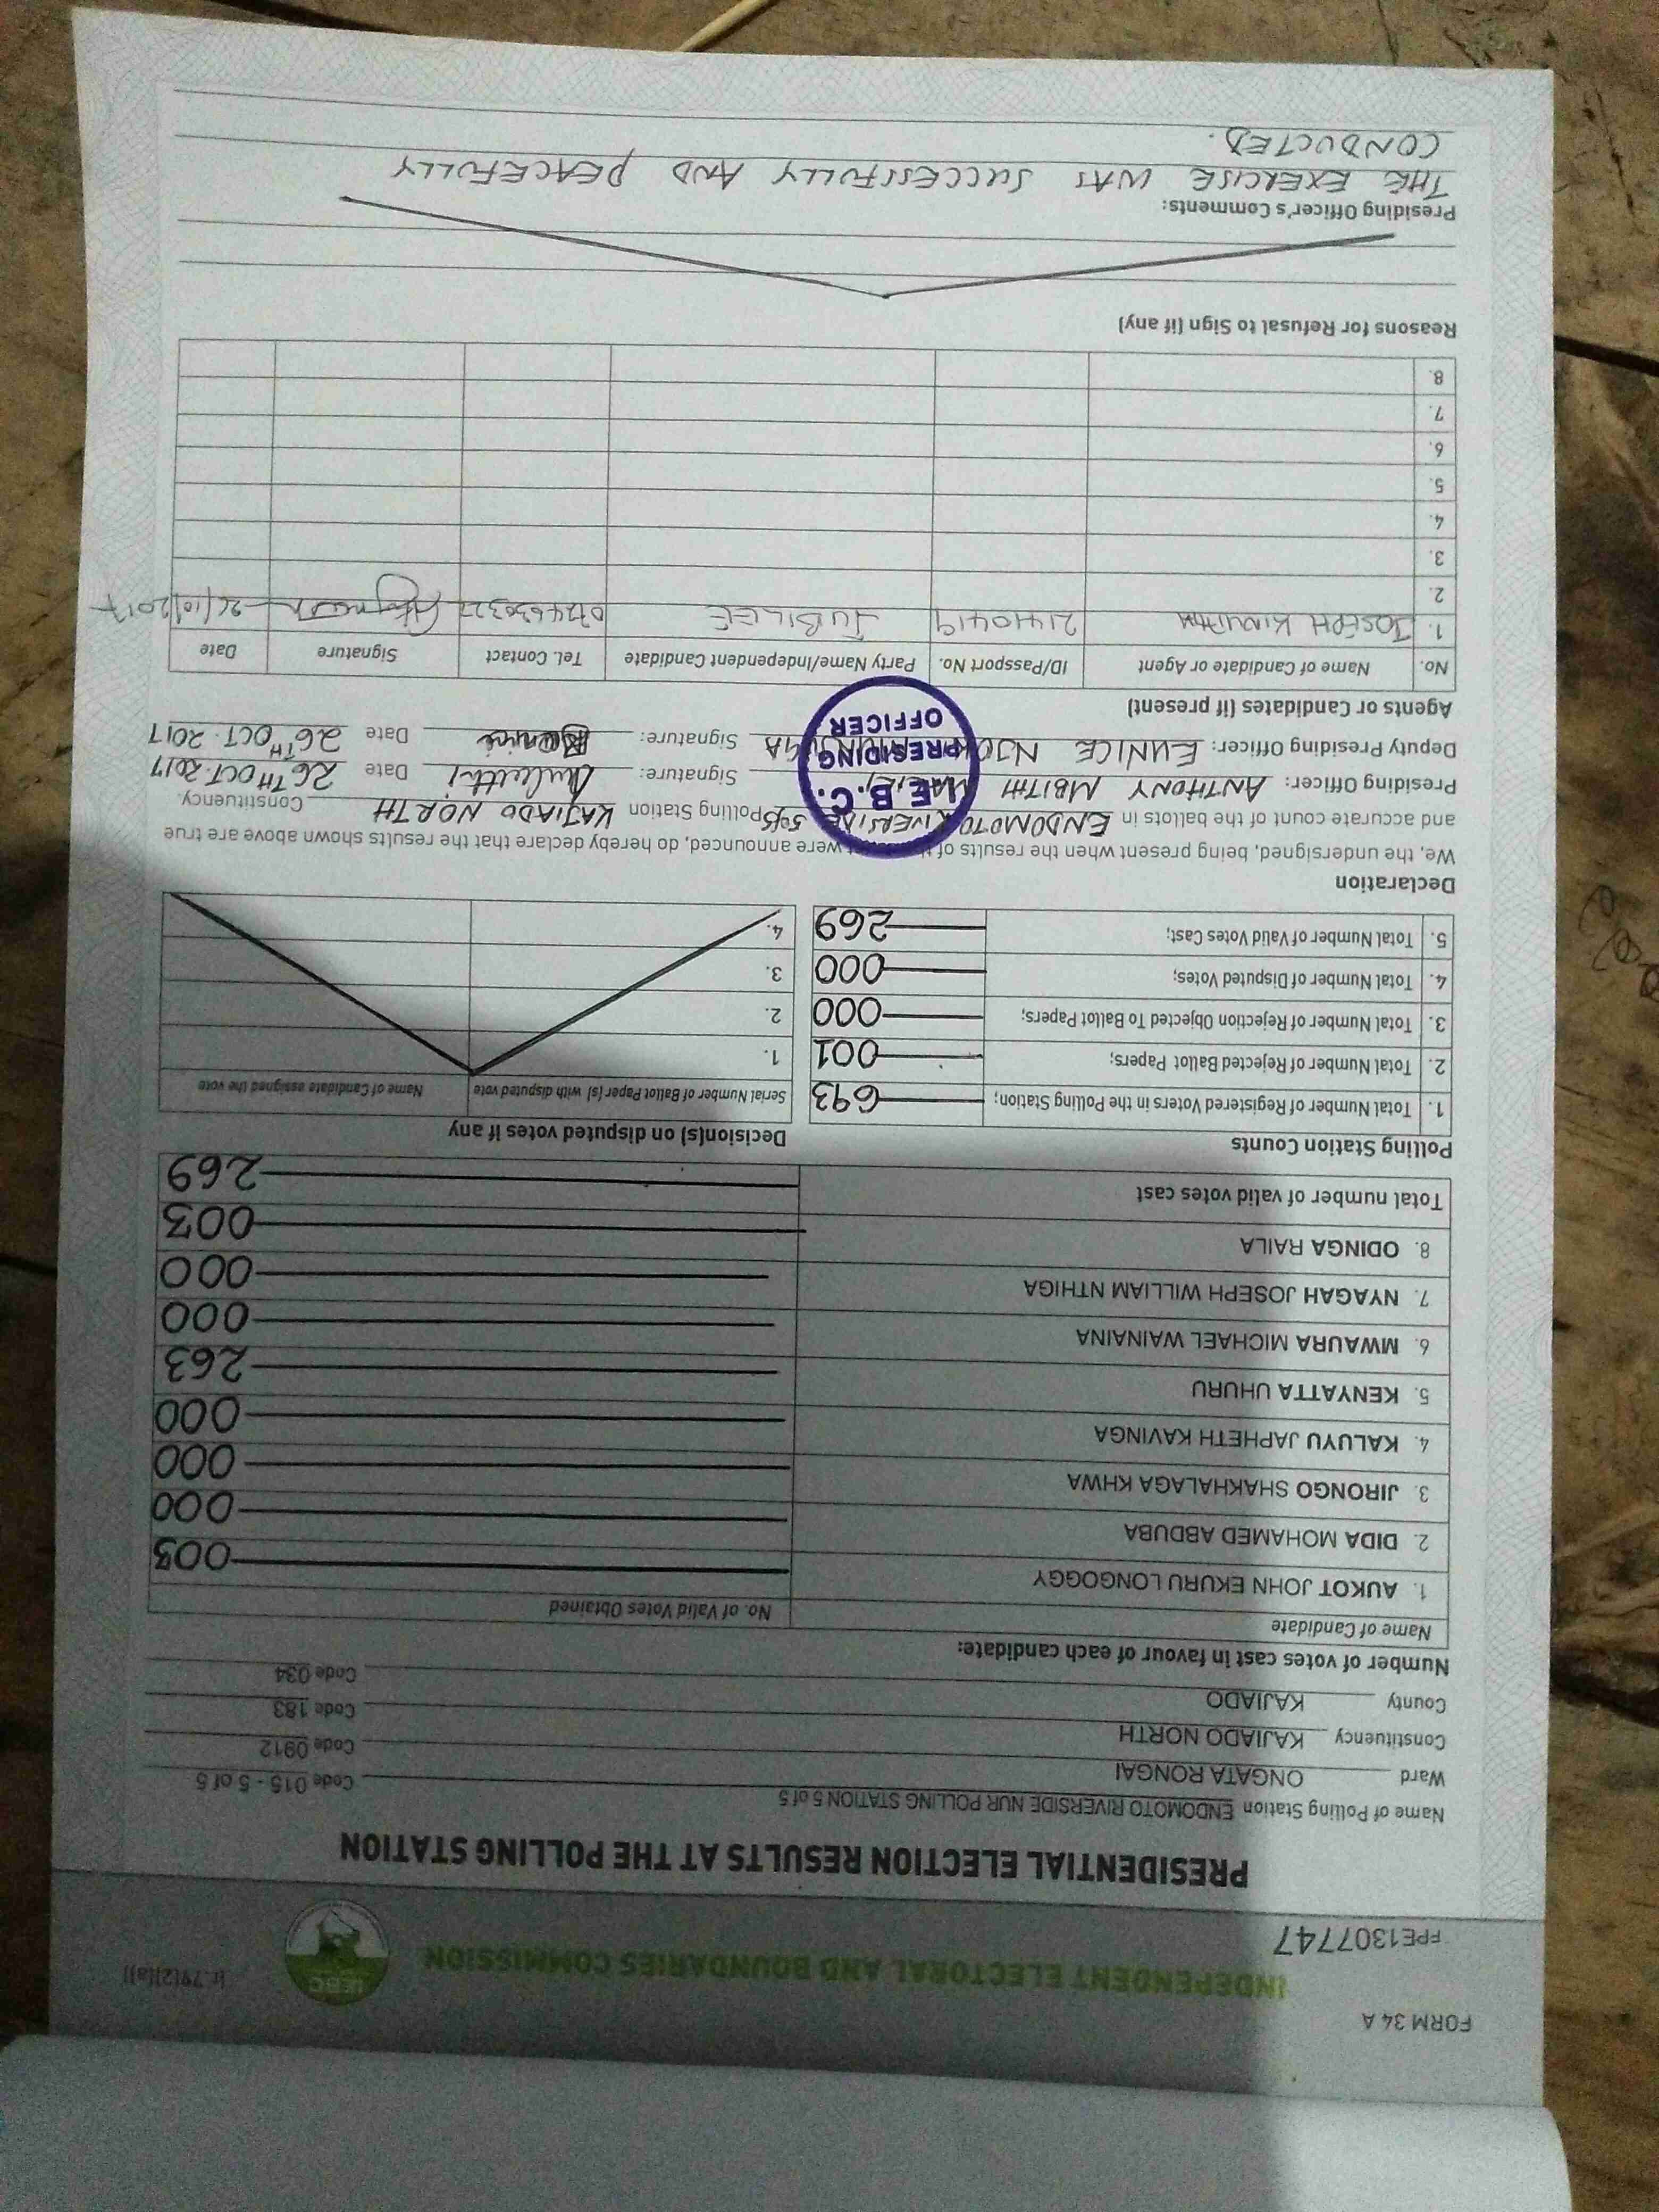 FORM 34 A
[r.79(2)(a)]
INDEPENDENT ELECTORAL AND BOUNDARIES COMMISSION
IEBC
FPE1307747
PRESIDENTIAL ELECTION RESULTS AT THE POLLING STATION
Name of Polling Station ENDOMOTO RIVERSIDE NUR POLLING STATION 5 of 5 Code 015 - 5 of 5
Ward ONGATA RONGAI Code 0912
Constituency KAJIADO NORTH Code 183
County KAJIADO Code 034
Number of votes cast in favour of each candidate:
Name of Candidate No. of Valid Votes Obtained
1. AUKOT JOHN EKURU LONGOGGY 003
2. DIDA MOHAMED ABDUBA 000
3. JIRONGO SHAKHALAGA KHWA 000
4. KALUYU JAPHETH KAVINGA 000
5. KENYATTA UHURU 263
6. MWAURA MICHAEL WAINAINA 000
7. NYAGAH JOSEPH WILLIAM NTHIGA 000
8. ODINGA RAILA 003
Total number of valid votes cast 269
Polling Station Counts
1. Total Number of Registered Voters in the Polling Station; 693
2. Total Number of Rejected Ballot Papers; 001
3. Total Number of Rejection Objected To Ballot Papers; 000
4. Total Number of Disputed Votes; 000
5. Total Number of Valid Votes Cast; 269
Decision(s) on disputed votes if any
Serial Number of Ballot Paper (s) with disputed vote Name of Candidate assigned the vote
1.
2.
3.
4.
Declaration
We, the undersigned, being present when the results of the were announced, do hereby declare that the results shown above are true
and accurate count of the ballots in ENDOMOTO RIVERSIDE 5 of 5 Polling Station KAJIADO NORTH Constituency.
Presiding Officer: ANTHONY MBITHI Signature: Date 26TH OCT. 2017
Deputy Presiding Officer: EUNICE Signature: Date 26TH OCT. 2017
I.E.B.C.
PRESIDING
OFFICER
Agents or Candidates (if present)
No. Name of Candidate or Agent ID/Passport No. Party Name/Independent Candidate Tel. Contact Signature Date
1. JOSEPH 21410419 JUBILEE 26/10/2017
2.
3.
4.
5.
6.
7.
8.
Reasons for Refusal to Sign (if any)
Presiding Officer's Comments:
THE EXERCISE WAS SUCCESSFULLY AND PEACEFULLY
CONDUCTED.